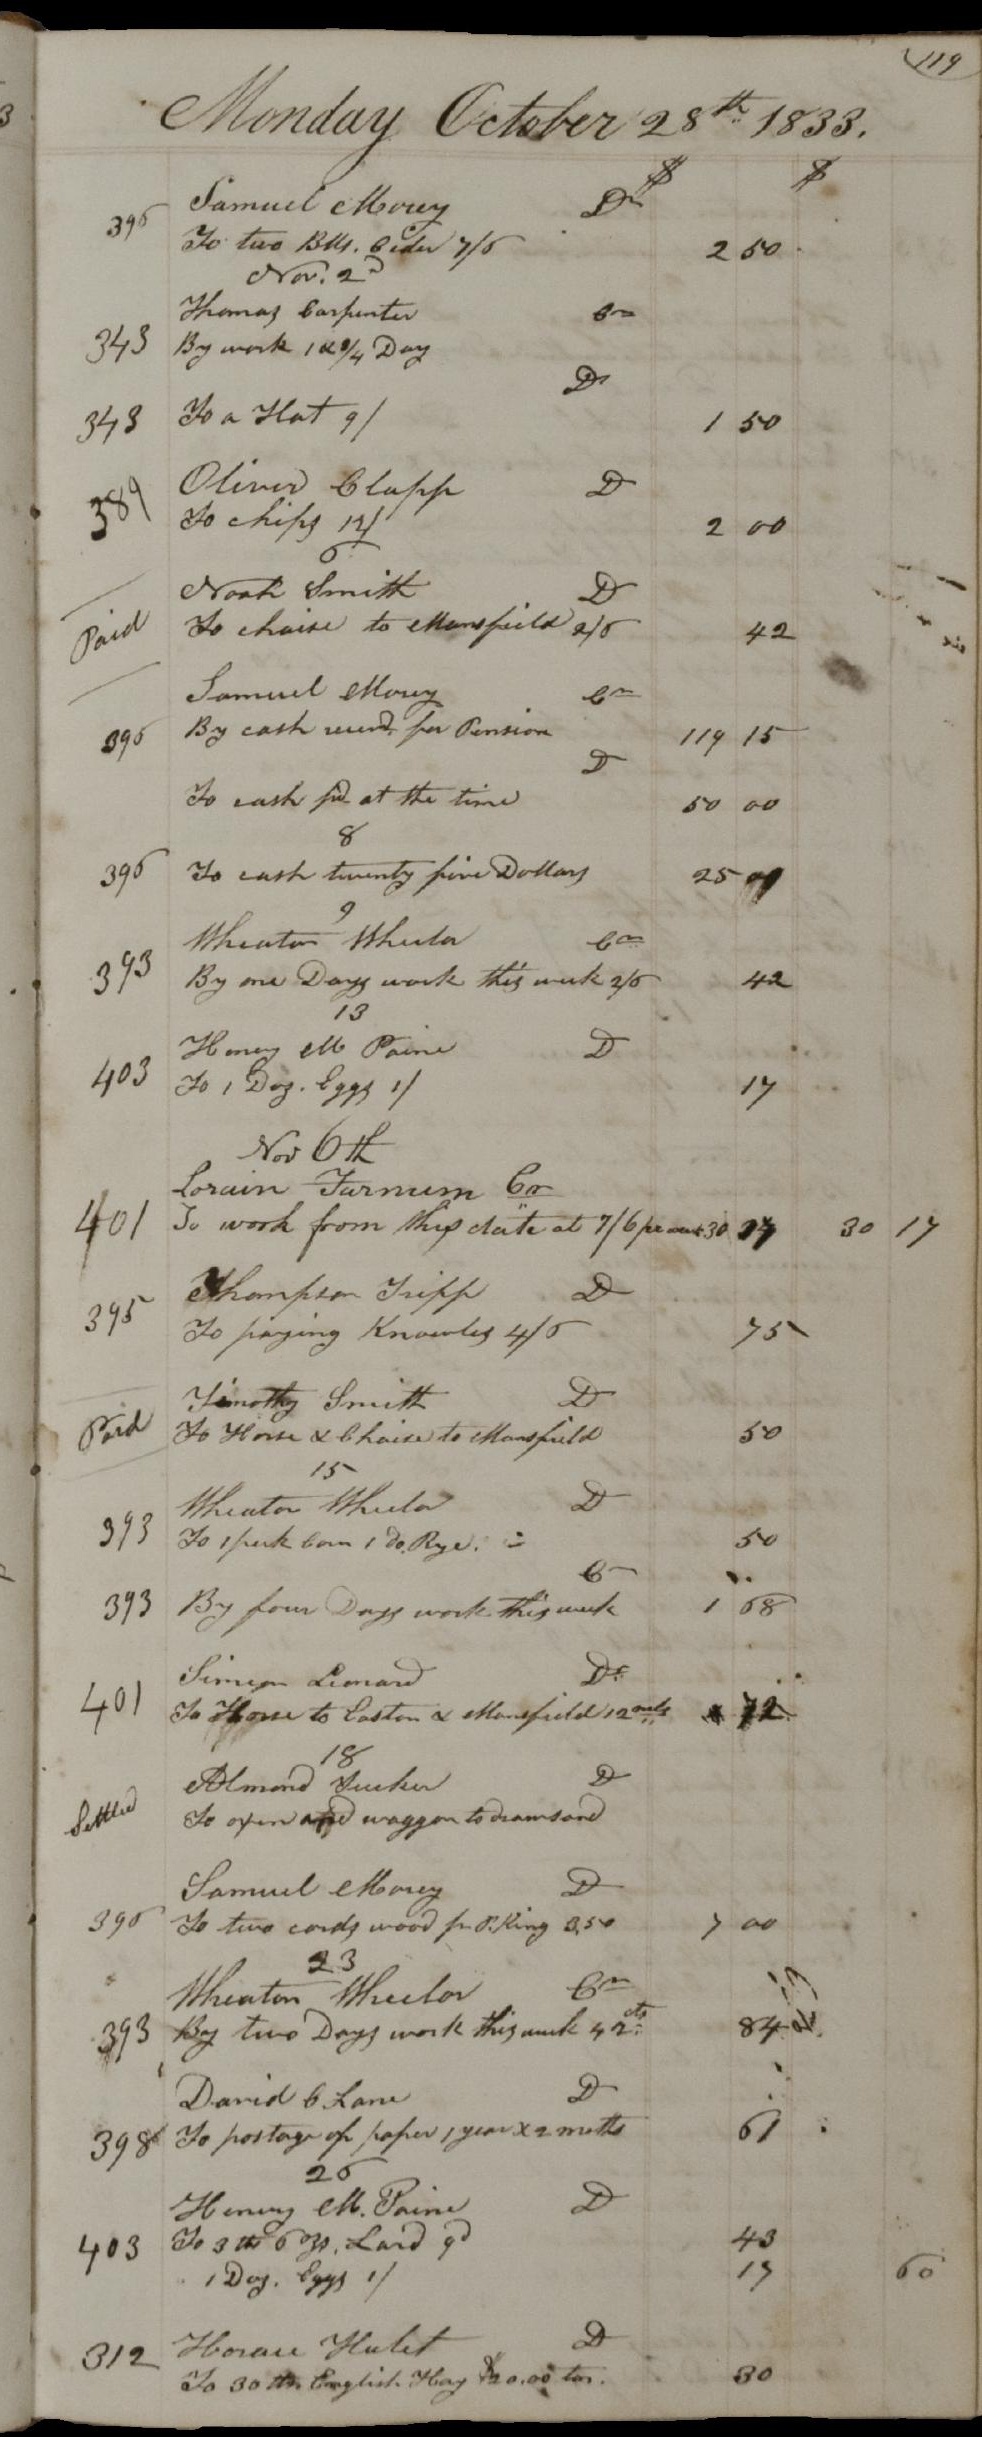 119
Monday October 28th 1833.
$ $
Samuel Morey Dr
396 To two Blls. Cider 7/6 2 50
Nov. 2d
Thomas Carpenter Cr
343 By work 1 & 3/4 Day
Dr
343 To a Hat 9/ 1 50
Oliver Clapp D
389 To chips 12/ 2 00
6
Noah Smith D
Paid To chaise to Mansfield 2/6 42
Samuel Morey Cr
396 By cash recevd for Pension 119 15
D
To cash pd at the time 50 00
8
396 To cash twenty five Dollars 25 00
9
Wheaton Wheelor Cr
393 By one Days work this week 2/6 42
13
Henery M Paine D
403 To 1 Doz. Eggs 1/ 17
Nov 6th
Lorain Farnum Cr
401 To work from this date at 7/6 pr week 30 17 30 17
Thompson Tripp D
395 To paying Knowles 4/6 75
Timothy Smith D
Paid To Horse & Chaise to Mansfield 50
15
Wheaton Wheelor D
393 To 1 peck Corn 1 do. Rye. 50
Cr
393 By four Days work this week 1 68
Simeon Leonard Dr
401 To Horse to Easton & Mansfield 12 mils 72
18
Almond Tucker D
Settled To oxen and waggon to draw sand
Samuel Morey D
396 To two cords wood fr P. King 3.50 7 00
23
Wheaton Wheelor Cr
393 By two Days work this week 42 cts 84
David C. Lane D
398 To postage of paper 1 year & 2 moths 61
26
Henery M. Paine D
403 To 3 lb 6 ozs. Lard 9d 43
1 Doz. Eggs 1/ 17 60
Horace Hulet D
312 To 30 lbs English Hay $20.00 ton. 30